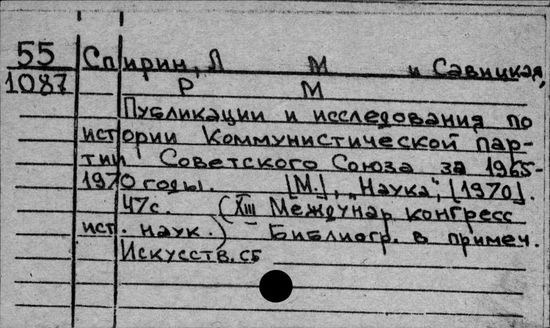 55 Спирин, Л М и Савицкая,
1087 Р М
Публикации и исследования по
истории Коммунистической пар-
тии Советского Союза за 1965-
1970 годы. [М.], "Наука", [1970].
47с. (XIII Междунар. конгресс
ист. наук.) Библиогр. в примеч.
Искусств. сб